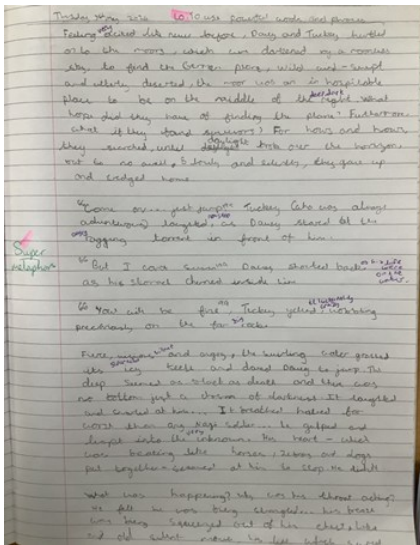 Thursday May L.O. To use powerful words and phrases
Feeling very excited like never before, Davey and Tucky hurtled
onto the moors, which were darkened by a moonless
sky, to find the German plane, wild and wind-swept
and utterly deserted, the moor was an inhospitable
place to be in the middle of the night. What
hope did they have of finding the plane? Furthermore,
what if they found survivors? For hours and hours,
they searched, until daylight broke over the horizon,
but to no avail, and silently, they gave up
and trudged home.
"Come on... just jump" Tucky (who was always
adventurous) laughed, as Davey stared at the
raging torrent in front of him.
Super
metaphor
"But I can't swim" Davey shouted back
as his stomach churned inside him
"You will be fine," Tucky yelled, wobbling
precariously on the far rocks.
Fierce, and angry, the swirling water gnashed
its icy teeth and dared Davey to jump. The
deep seemed as black as death and there was
no bottom just a chasm of darkness. It laughed
and snarled at him... It breathed hatred far
worse than any Nazi soldier... he gulped and
leapt into the unknown. His heart - which
was beating like horses, and dogs
put together - screamed at him to stop. He didn't
What was happening? Why was his throat aching?
He felt he was being strangled... his breath
was being squeezed out of his chest, like
an old